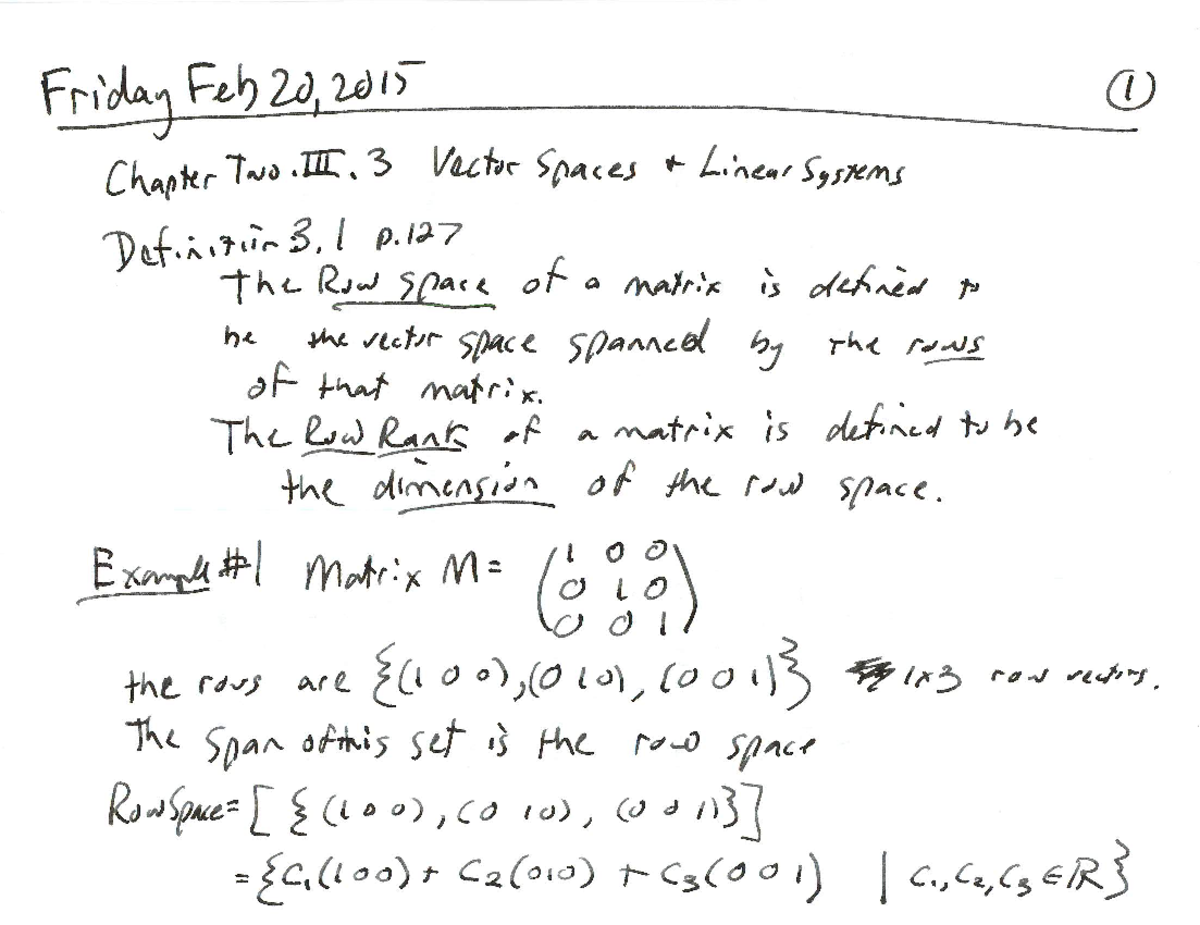 Friday Feb 20, 2015 ①
Chapter Two.III.3 Vector Spaces + Linear Systems
Definition 3.1 p.127
The Row Space of a matrix is defined to
be the vector space spanned by the rows
of that matrix.
The Row Rank of a matrix is defined to be
the dimension of the row space.
Example #1 Matrix M = (1 0 0
0 1 0
0 0 1)
the rows are {(1 0 0),(0 1 0), (0 0 1)} 1x3 row vectors.
The span of this set is the row space
RowSpace = [{(1 0 0), (0 1 0), (0 0 1)}]
= {C₁(1 0 0) + C₂(0 1 0) + C₃(0 0 1) | C₁, C₂, C₃ ∈ ℝ}